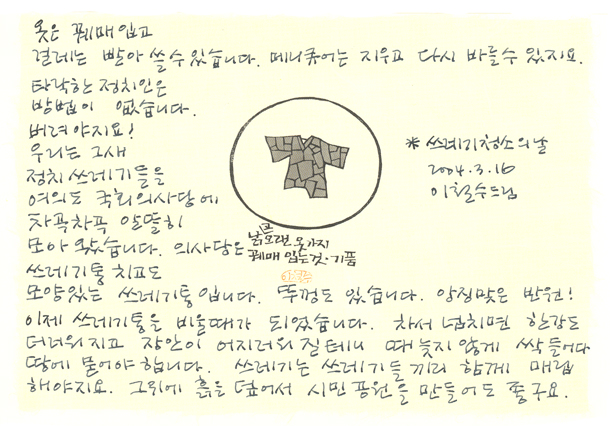 옷은 꿰매 입고
걸레는 빨아 쓸 수 있습니다. 매니큐어는 지우고 다시 바를 수 있지요.
타락한 정치인은
방법이 없습니다.
버려야지요!
우리는 그새
정치 쓰레기들을
여의도 국회의사당에
차곡차곡 알뜰히
모아 왔습니다. 의사당은
쓰레기통 치고도
모양있는 쓰레기통입니다. 뚜껑도 있습니다. 앙징맞은 반원!
이제 쓰레기통을 비울때가 되었습니다. 차서 넘치면 한강도
더러워지고 장안이 어지러워질테니 때 늦지 않게 싹 들어다
땅에 묻어야 합니다. 쓰레기는 쓰레기들끼리 함께 매립
해야지요. 그위에 흙을 덮어서 시민공원을 만들어도 좋구요.
낡고
오래된 옷가지
꿰매 입는 것·기품
* 쓰레기청소의 날
2004.3.16
이철수드림